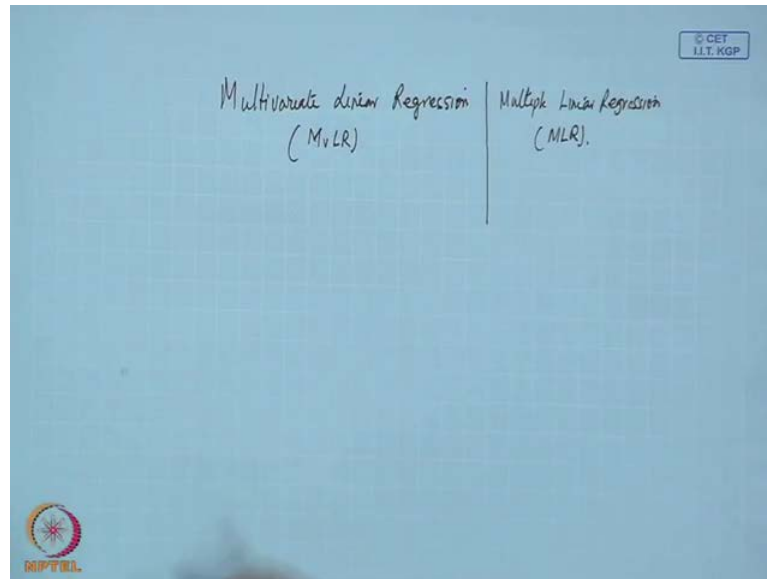 © CET
I.I.T. KGP
Multivariate Linear Regression
(MvLR)
Multiple Linear Regression
(MLR).
NPTEL